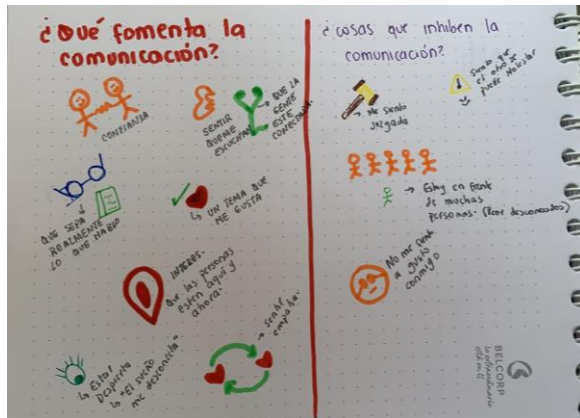 ¿Qué fomenta la
comunicación?
CONFIANZA
SENTIR
QUE ME
ESCUCHAN
→ QUE LA
GENTE
ESTE
CONECTADA.
QUE SEPA
REALMENTE
LO QUE HABLO
↳ UN TEMA QUE
ME GUSTA
INTERES.
Que las personas
esten aquí y
ahora.
↳ Estar
Despierta
↳ "El sueño
me desconecta"
→ Sentir
empatia.
¿cosas que inhiben la
comunicación?
→ Me siento
juzgada
Siento que
el otro se
puede Molestar
→ Estoy en frente
de muchas
personas. (
No me siento
a gusto
conmigo
BELCORP
lo extraordinario
está en ti